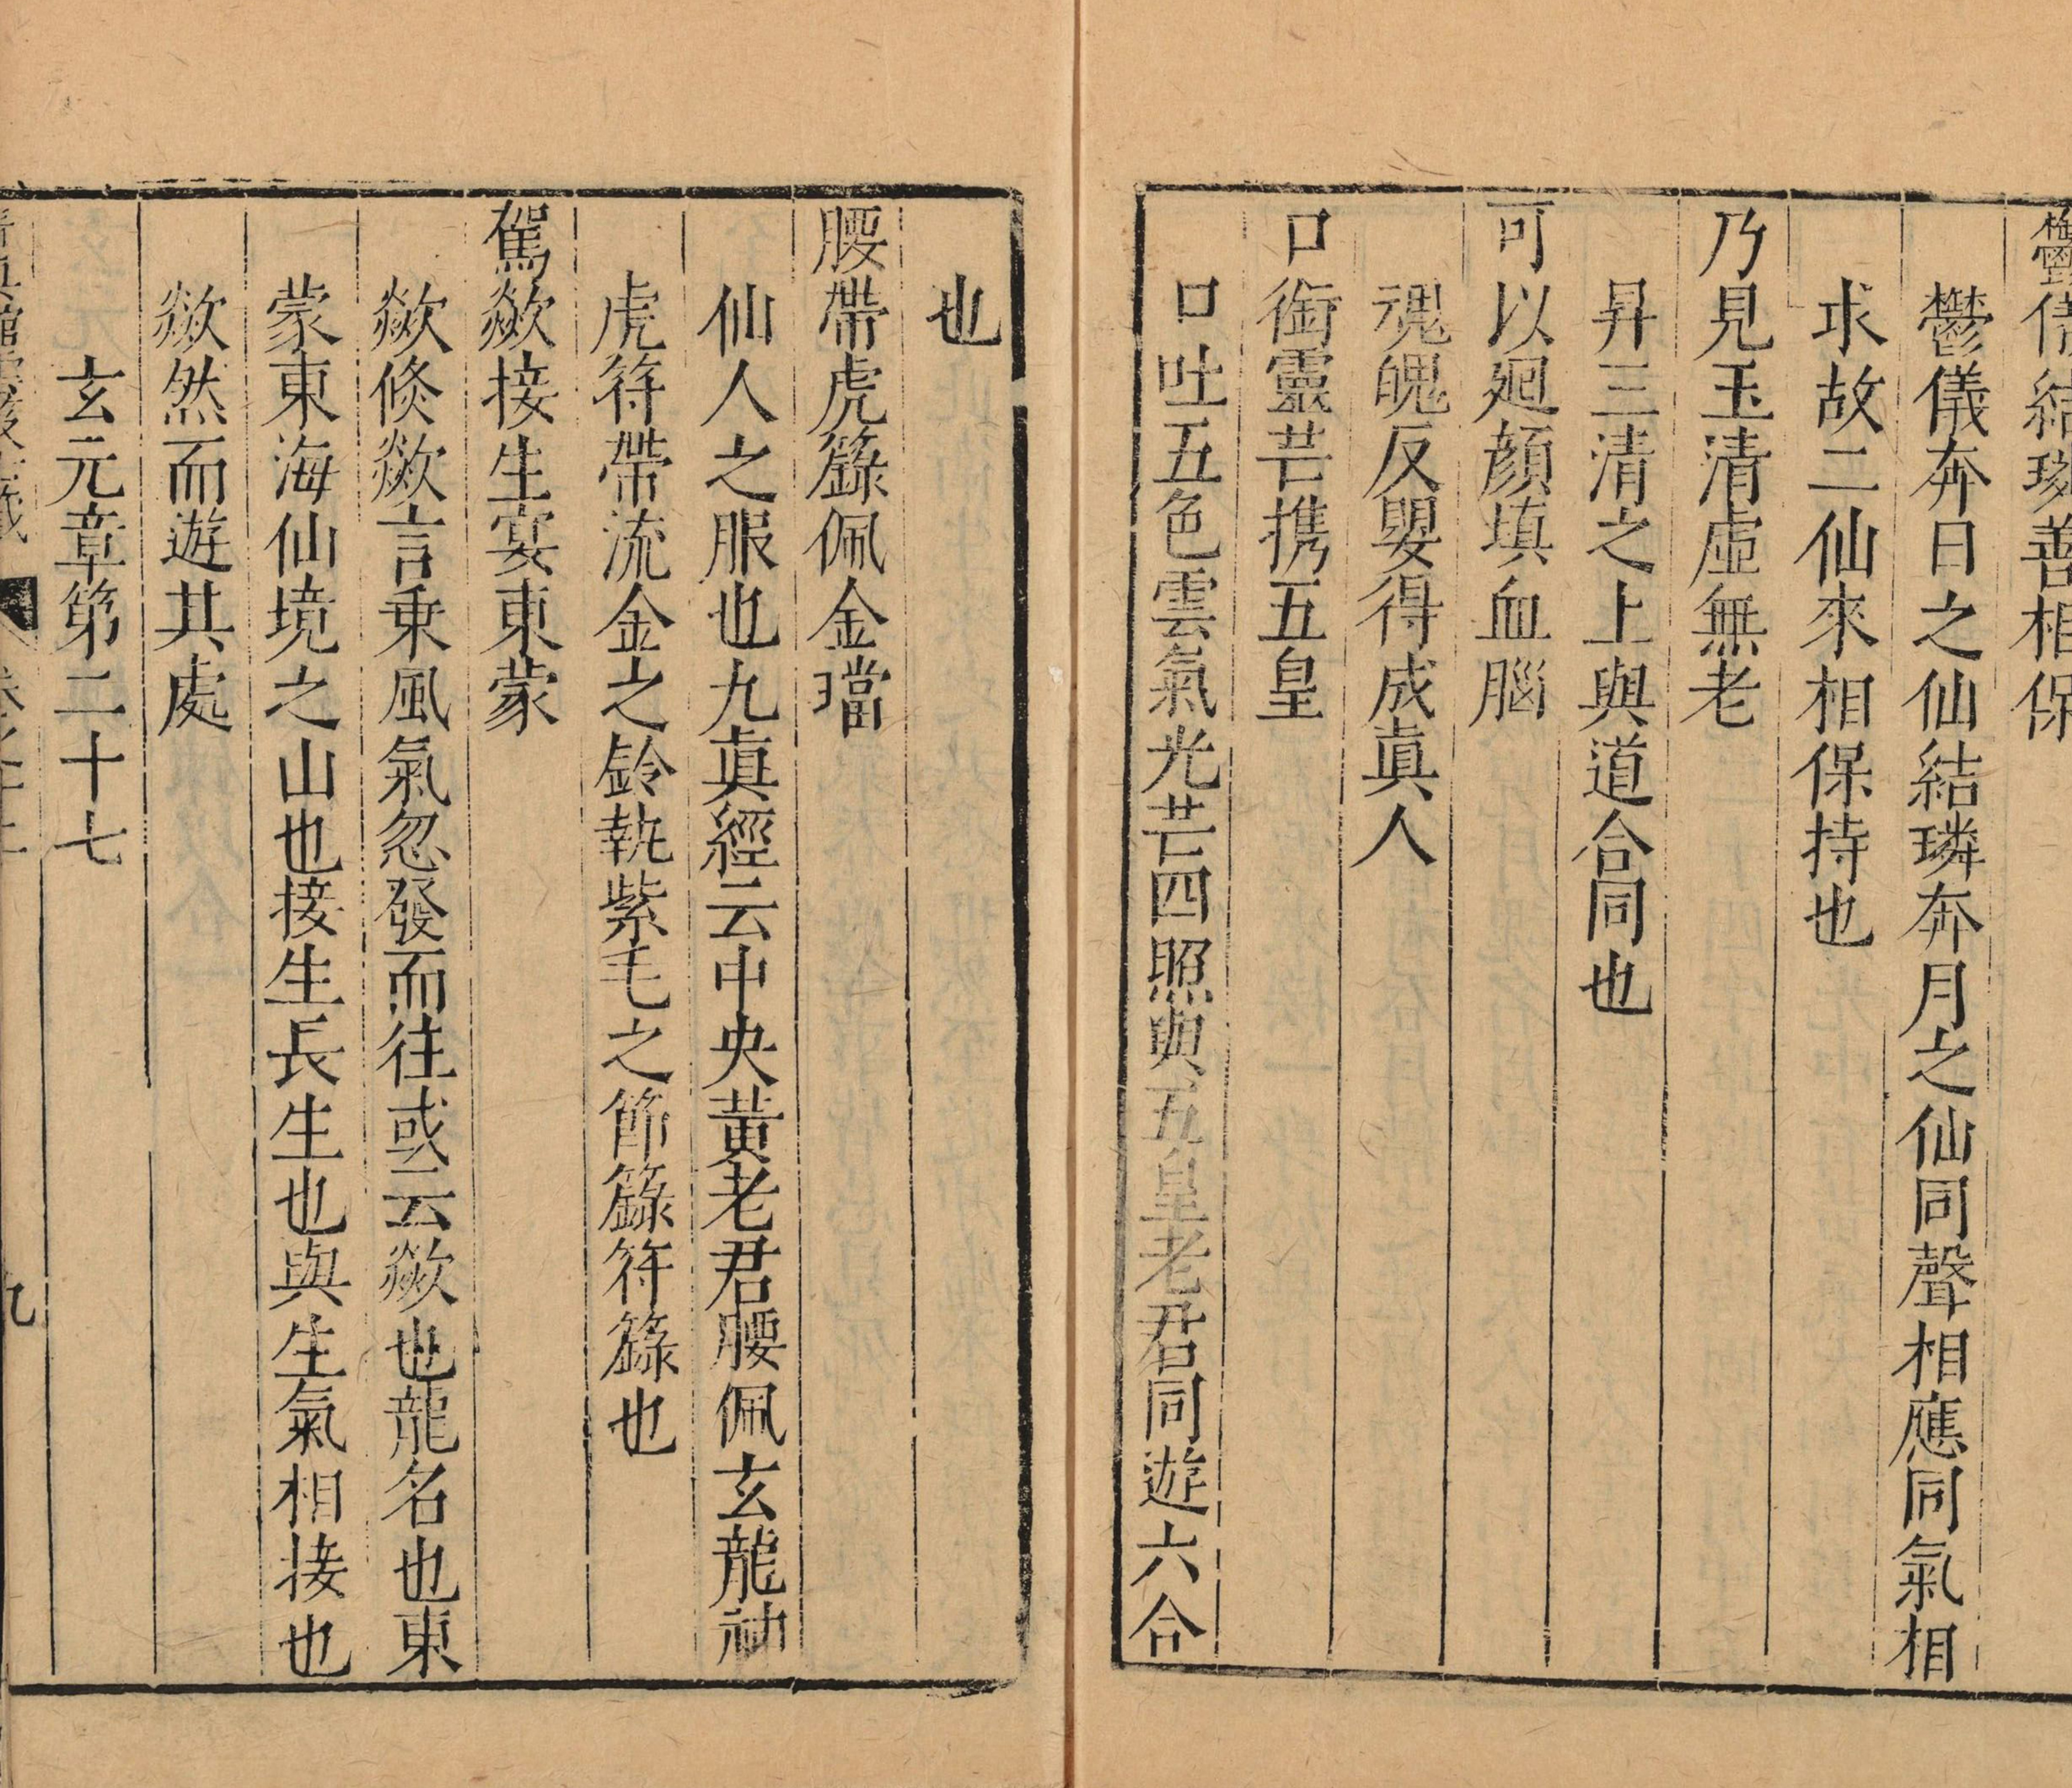 鬱儀結璘善相保
鬱儀奔日之仙結璘奔月之仙同聲相應同氣相
求故二仙來相保持也
乃見玉清虛無老
昇三清之上與道合同也
可以廻顔填血腦
魂魄反嬰得成眞人
口銜靈芒携五皇
口吐五色雲氣光芒四照與五皇老君同遊六合
也
腰帶虎籙佩金璫
仙人之服也九眞經云中央黃老君腰佩玄龍神
虎符帶流金之鈴執紫毛之節籙符籙也
駕歘接生宴東蒙
歘倐歘言乗風氣忽發而往或云歘也龍名也東
蒙東海仙境之山也接生長生也與生氣相接也
歘然而遊其處
玄元章第二十七
九